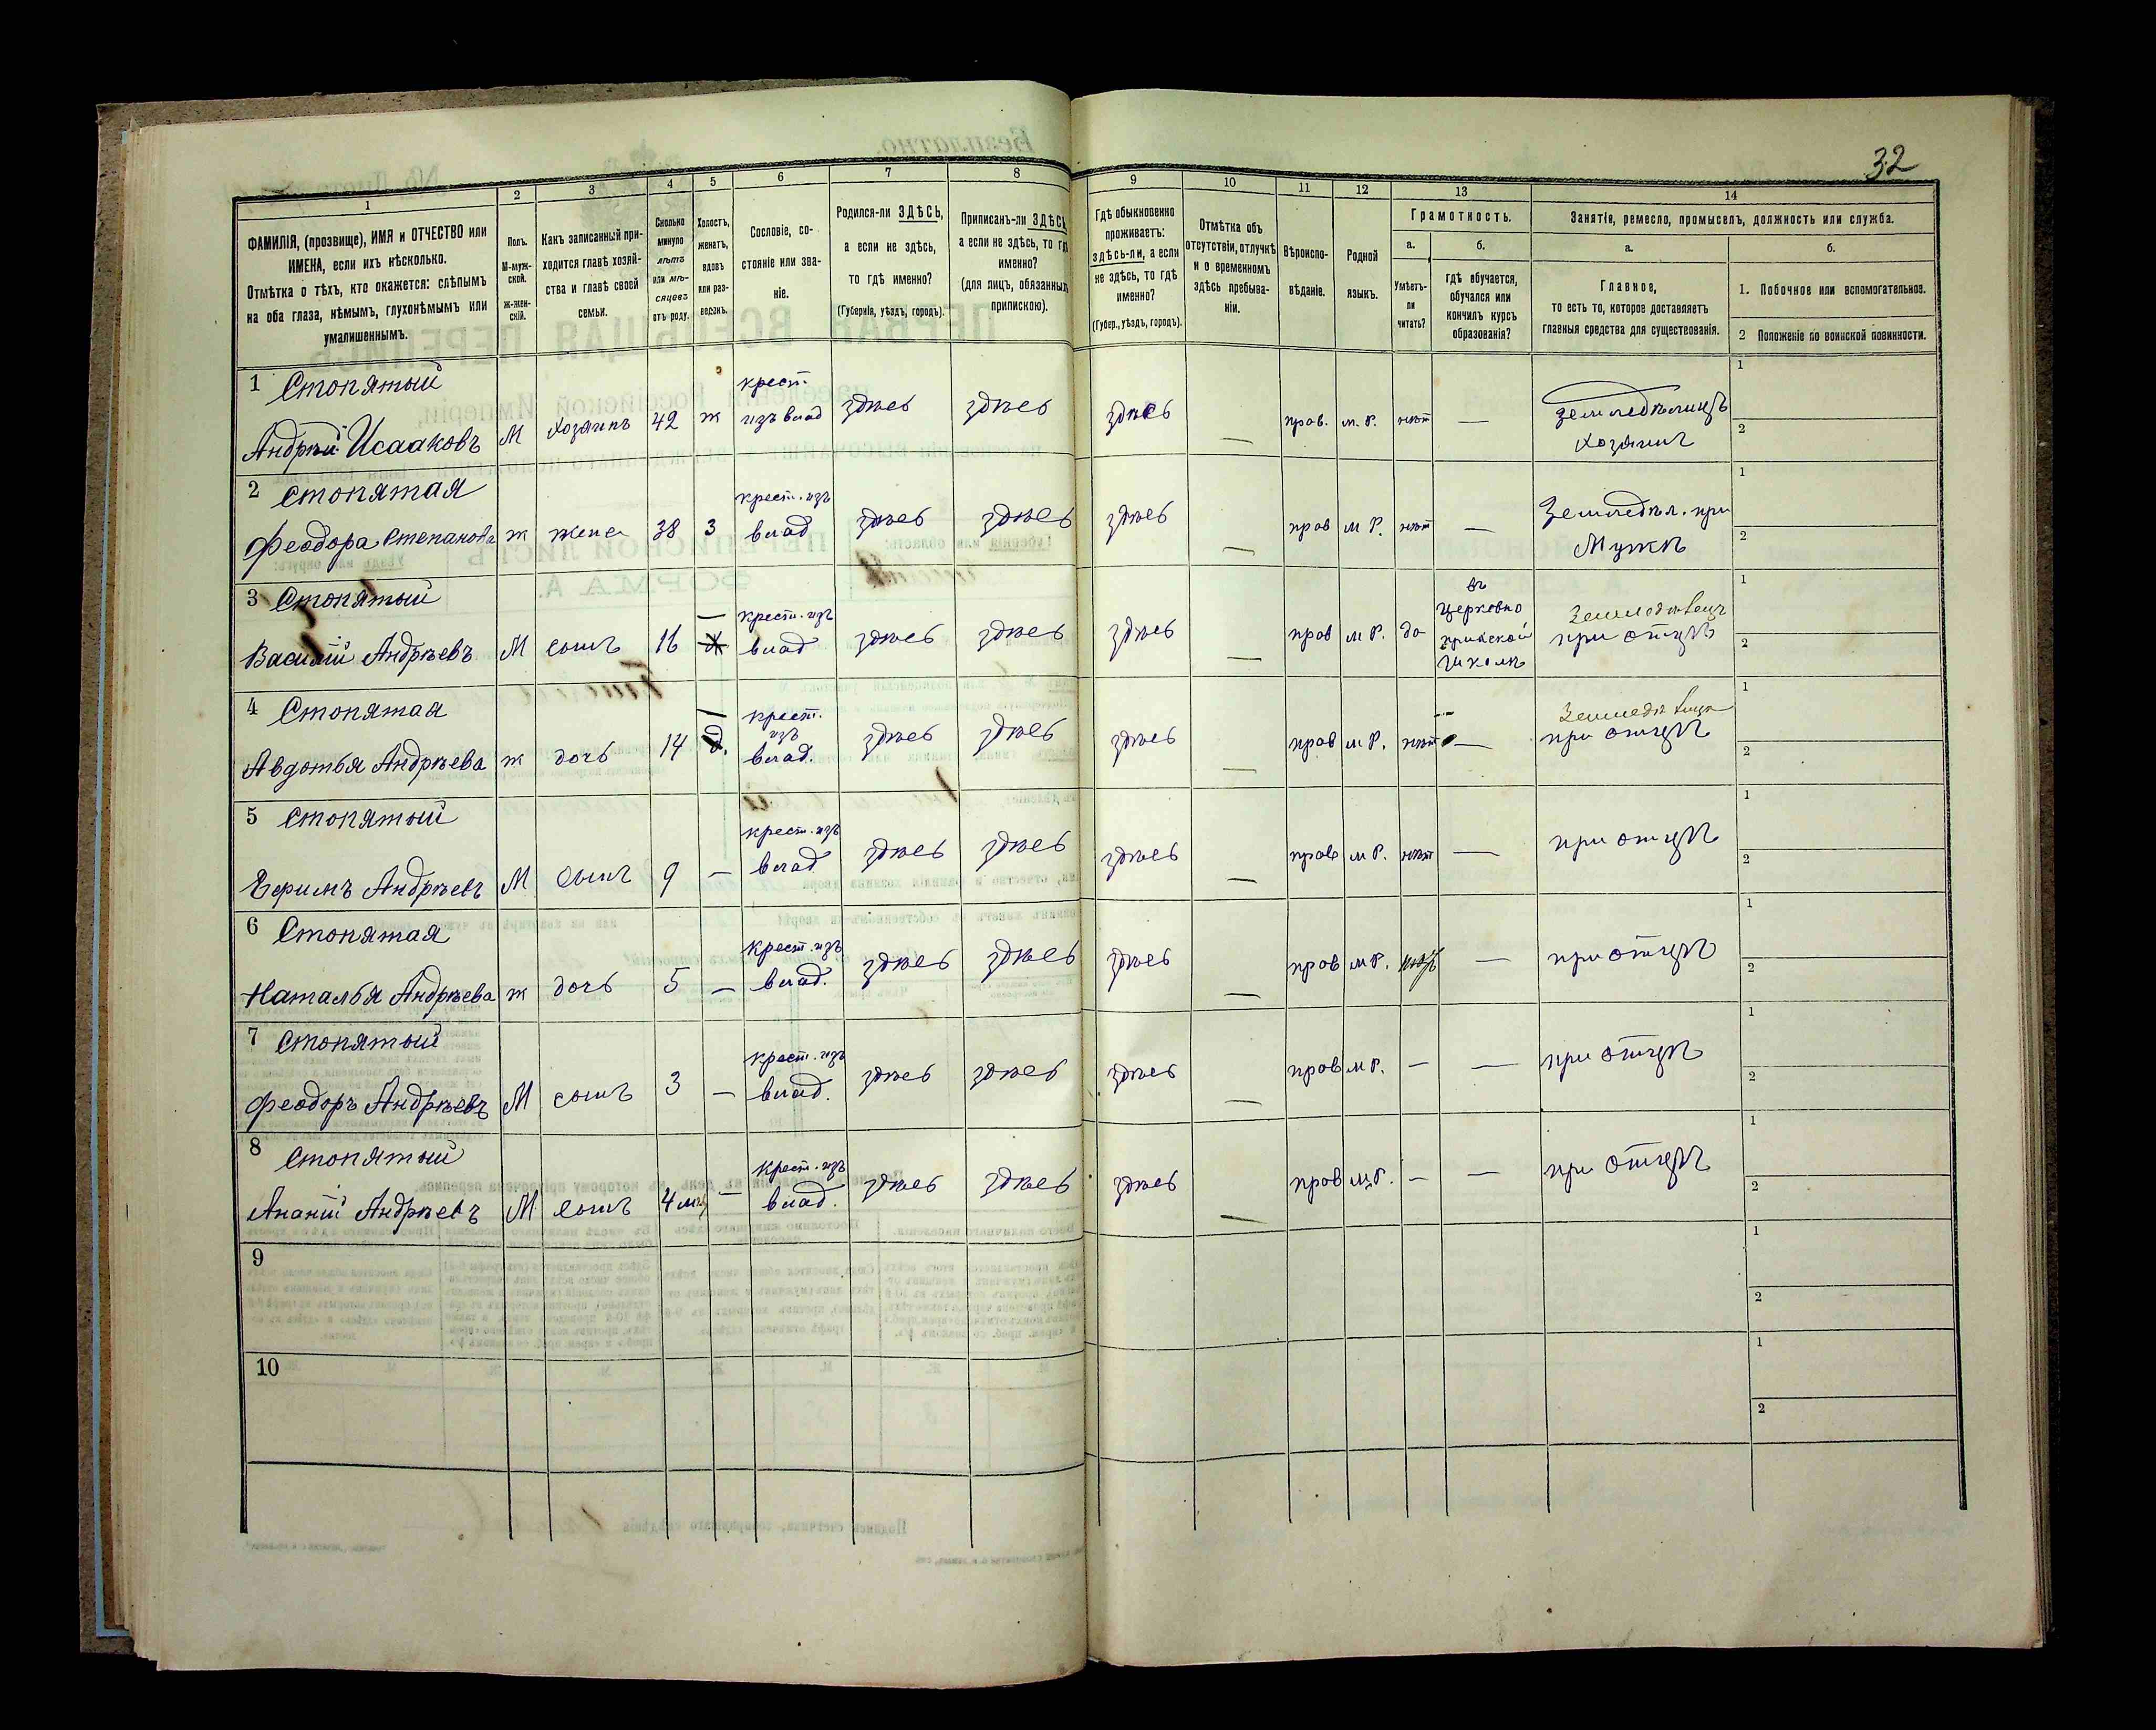 32
1
2
3
4
5
6
7
8
9
10
11
12
13
14
ФАМИЛІЯ, (прозвище), ИМЯ и ОТЧЕСТВО или
ИМЕНА, если ихъ нѣсколько.
Отмѣтка о тѣхъ, кто окажется: слѣпымъ
на оба глаза, нѣмымъ, глухонѣмымъ или
умалишеннымъ.
Полъ.
М-муж-
ской.
ж-жен-
скій.
Какъ записанный при-
ходится главѣ хозяй-
ства и главѣ своей
семьи.
Сколько
минуло
лѣтъ
или мѣ-
сяцевъ
отъ роду.
Холостъ,
женатъ,
вдовъ
или раз-
веденъ.
Сословіе, со-
стояніе или зва-
ніе.
Родился-ли ЗДѢСЬ,
а если не здѣсь,
то гдѣ именно?
(Губернія, уѣздъ, городъ).
Приписанъ-ли ЗДѢСЬ
а если не здѣсь, то гдѣ
именно?
(для лицъ, обязанныхъ
припискою).
Гдѣ обыкновенно
проживаетъ:
здѣсь-ли, а если
не здѣсь, то гдѣ
именно?
(Губер., уѣздъ, городъ).
Отмѣтка объ
отсутствіи, отлучкѣ
и о временномъ
здѣсь пребыва-
ніи.
Вѣроиспо-
вѣданіе.
Родной
языкъ.
Грамотность.
а.
Умѣетъ-
ли
читать?
б.
гдѣ обучается,
обучался или
кончилъ курсъ
образованія?
Занятія, ремесло, промыселъ, должность или служба.
а.
Главное,
то есть то, которое доставляетъ
главныя средства для существованія.
б.
1. Побочное или вспомогательное.
2 Положеніе по воинской повинности.
1 Стопятый
Андрѣй Исааковъ М хозяинъ 42 ж крест. изъ влад здѣсь здѣсь здѣсь — прав. м. р. нѣт — земледѣлицъ хозяинъ 1 2
2 Стопятая
Феодора Степанова ж жена 38 З крест. изъ влад здѣсь здѣсь здѣсь — прав м р. нѣт — Земледѣл. при Мужѣ 1 2
3 Стопятый
Василій Андрѣевъ М сынъ 16 — крест. изъ влад здѣсь здѣсь здѣсь — прав м р. да въ церковно школѣ при отцѣ 1 2
4 Стопятая
Авдотья Андрѣева ж дочь 14 — крест. изъ влад. здѣсь здѣсь здѣсь — прав м р. нѣт — при отцѣ 1 2
5 Стопятый
Ефимъ Андрѣевъ М сынъ 9 — крест. изъ влад здѣсь здѣсь здѣсь — прав м р. нѣт — при отцѣ 1 2
6 Стопятая
Наталья Андрѣева ж дочь 5 — крест. изъ влад. здѣсь здѣсь здѣсь — прав м р. — при отцѣ 1 2
7 Стопятый
Феодоръ Андрѣевъ М сынъ 3 — крест. изъ влад. здѣсь здѣсь здѣсь — прав м р. — — при отцѣ 1 2
8 Стопятый
Ананій Андрѣевъ М сынъ 4 мѣц — крест. изъ влад. здѣсь здѣсь здѣсь — прав м. р. — — при отцѣ 1 2
9 1 2
10 1 2